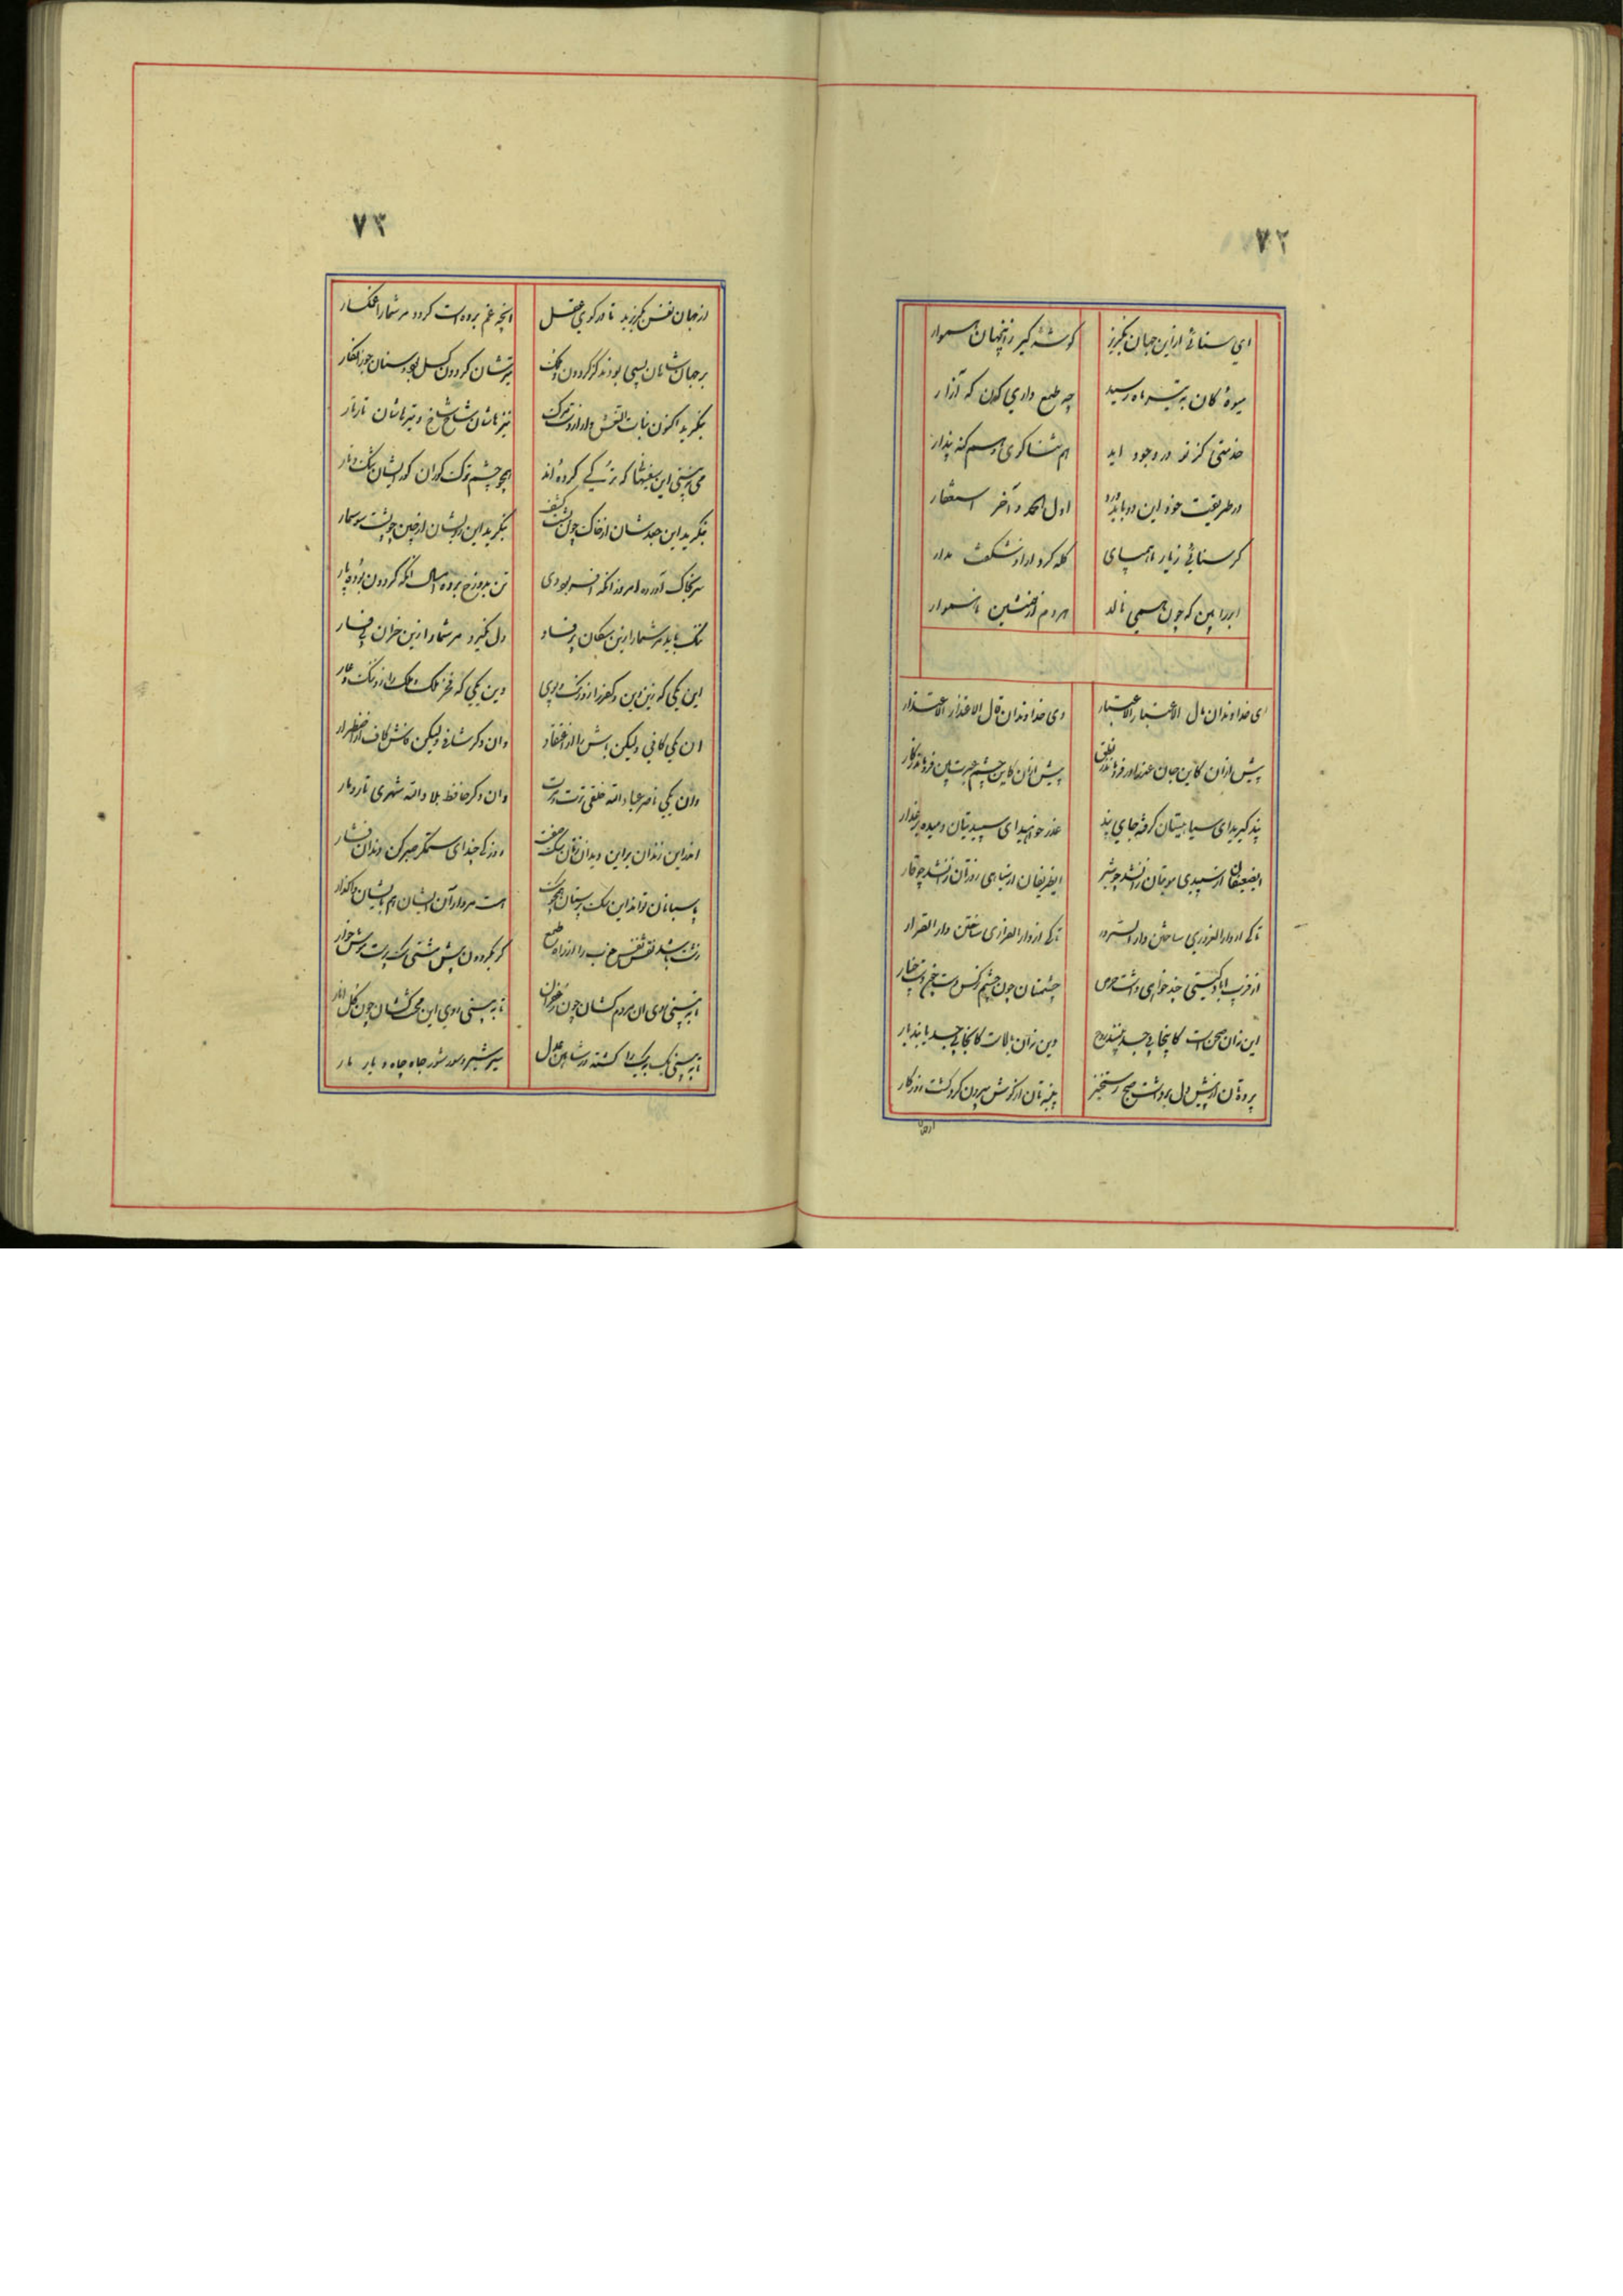 ۷۲
ای سنائی ازین جهان بگریز گوشه گیر زینجهان هموار
میوهٔ کان به تیر ماه رسید چه طمع داری کون که آزار
خدمتی کز تو در وجود اید هم ثناگوی و هم گنه پندار
در طریقت خود این دو باید ورد اول الحمد و آخر استغفار
گر سنائی زیار ناهمپای گله کرد ازاو شگفت مدار
ابر را بین که چون همی نالد هر دم از همنشین ناهموار
ای خداوندان مال الاعتبار الاعتبار وی خداوندان قال الاعتذار الاعتذار
پیش ازان کاین جان عذراور فرو ماند ز نطق پیش ازان کاین چشم عبرت بین فرو ماند ز کار
پند گیرید ای سیاهیتان گرفته جای پند عذر خواهید ای سپیدیتان دمیده بر عذار
ایضعیفان از سپیدی مویتان زانشد چو شیر ایظریفان از سیاهی روزتان زانشد چو قار
تا کی از دار الغروری ساختن دار السرور تا کی از دار الفراری ساختن دار القرار
از فریب اباد گیتی چند خواهی داشت حرص چشمتان چون چشم نرگس دست چون دست چنار
این نه آن صحن است کانجا بی جسد بینند روح وین نه آن بالاست کانجا بی جسد یابند بار
پرده تان از پیش دل برداشت صبح رستخیز پنبه تان از گوش بیرون کرد گشت روزگار
از جهان
۷۳
از جهان نفس بگریزید تا در کوی عقل انچه غم بوده است گردد مر شما را غمگسار
بر جهان شاهان بسی بودند کز گردون ملک تیرشان پروین گسل بود و سنان جوزا فگار
بنگرید اکنون بنات النعش وار از دست مرگ نیزه هاشان شاخ شاخ و تیرهاشان تار تار
می نبینی این سفیهانرا که ترکی کرده اند همچو چشم ترک گوران گورایشان تنگ و تار
بنگرید این جعدشان از خاک چون پشت کشف بنگرید این رویشان از چین چو پشت سوسمار
سر بخاک آورده امروز انکه افسر بود دی تن بدوزخ برده امسال انکه گردون بود پار
ننگ باید مر شما را زین سگان پر فساد دل نگیرد مر شما را زین خران بی فسار
این یکی گه زین دین و کفر را زو رنگ و بوی وین یکی گه فخر ملک و ملک را زو ننگ و عار
ان یکی کافی ولیکن فاش را از اعتقاد وان دگر شافی ولیکن فاش کاف از اضطرار
وان یکی ناصر عباد الله خلقی ترت و مرت وان دگر حافظ بلاد الله شهری تار و مار
اندراین زندان براین دندان زنان سگ صفت روزکی چند ای ستمگر صبر کن دندان فشار
پاسبانان تواند این سگ پرستان همچو سگ هست مردار آن ایشان هم بایشان واگذار
زشت باشد نقش نفس خوب را از راه طبع گر بگردون پیش مشتی سگ پرست و موش خوار
تا ببینی روی ان مردم کشان چون زعفران تا ببینی روی این محنت کشان چون گل انار
تا ببینی یک بیک را کشته در شاهین عدل شیر شیر و سور شور جاه چاه و یار مار